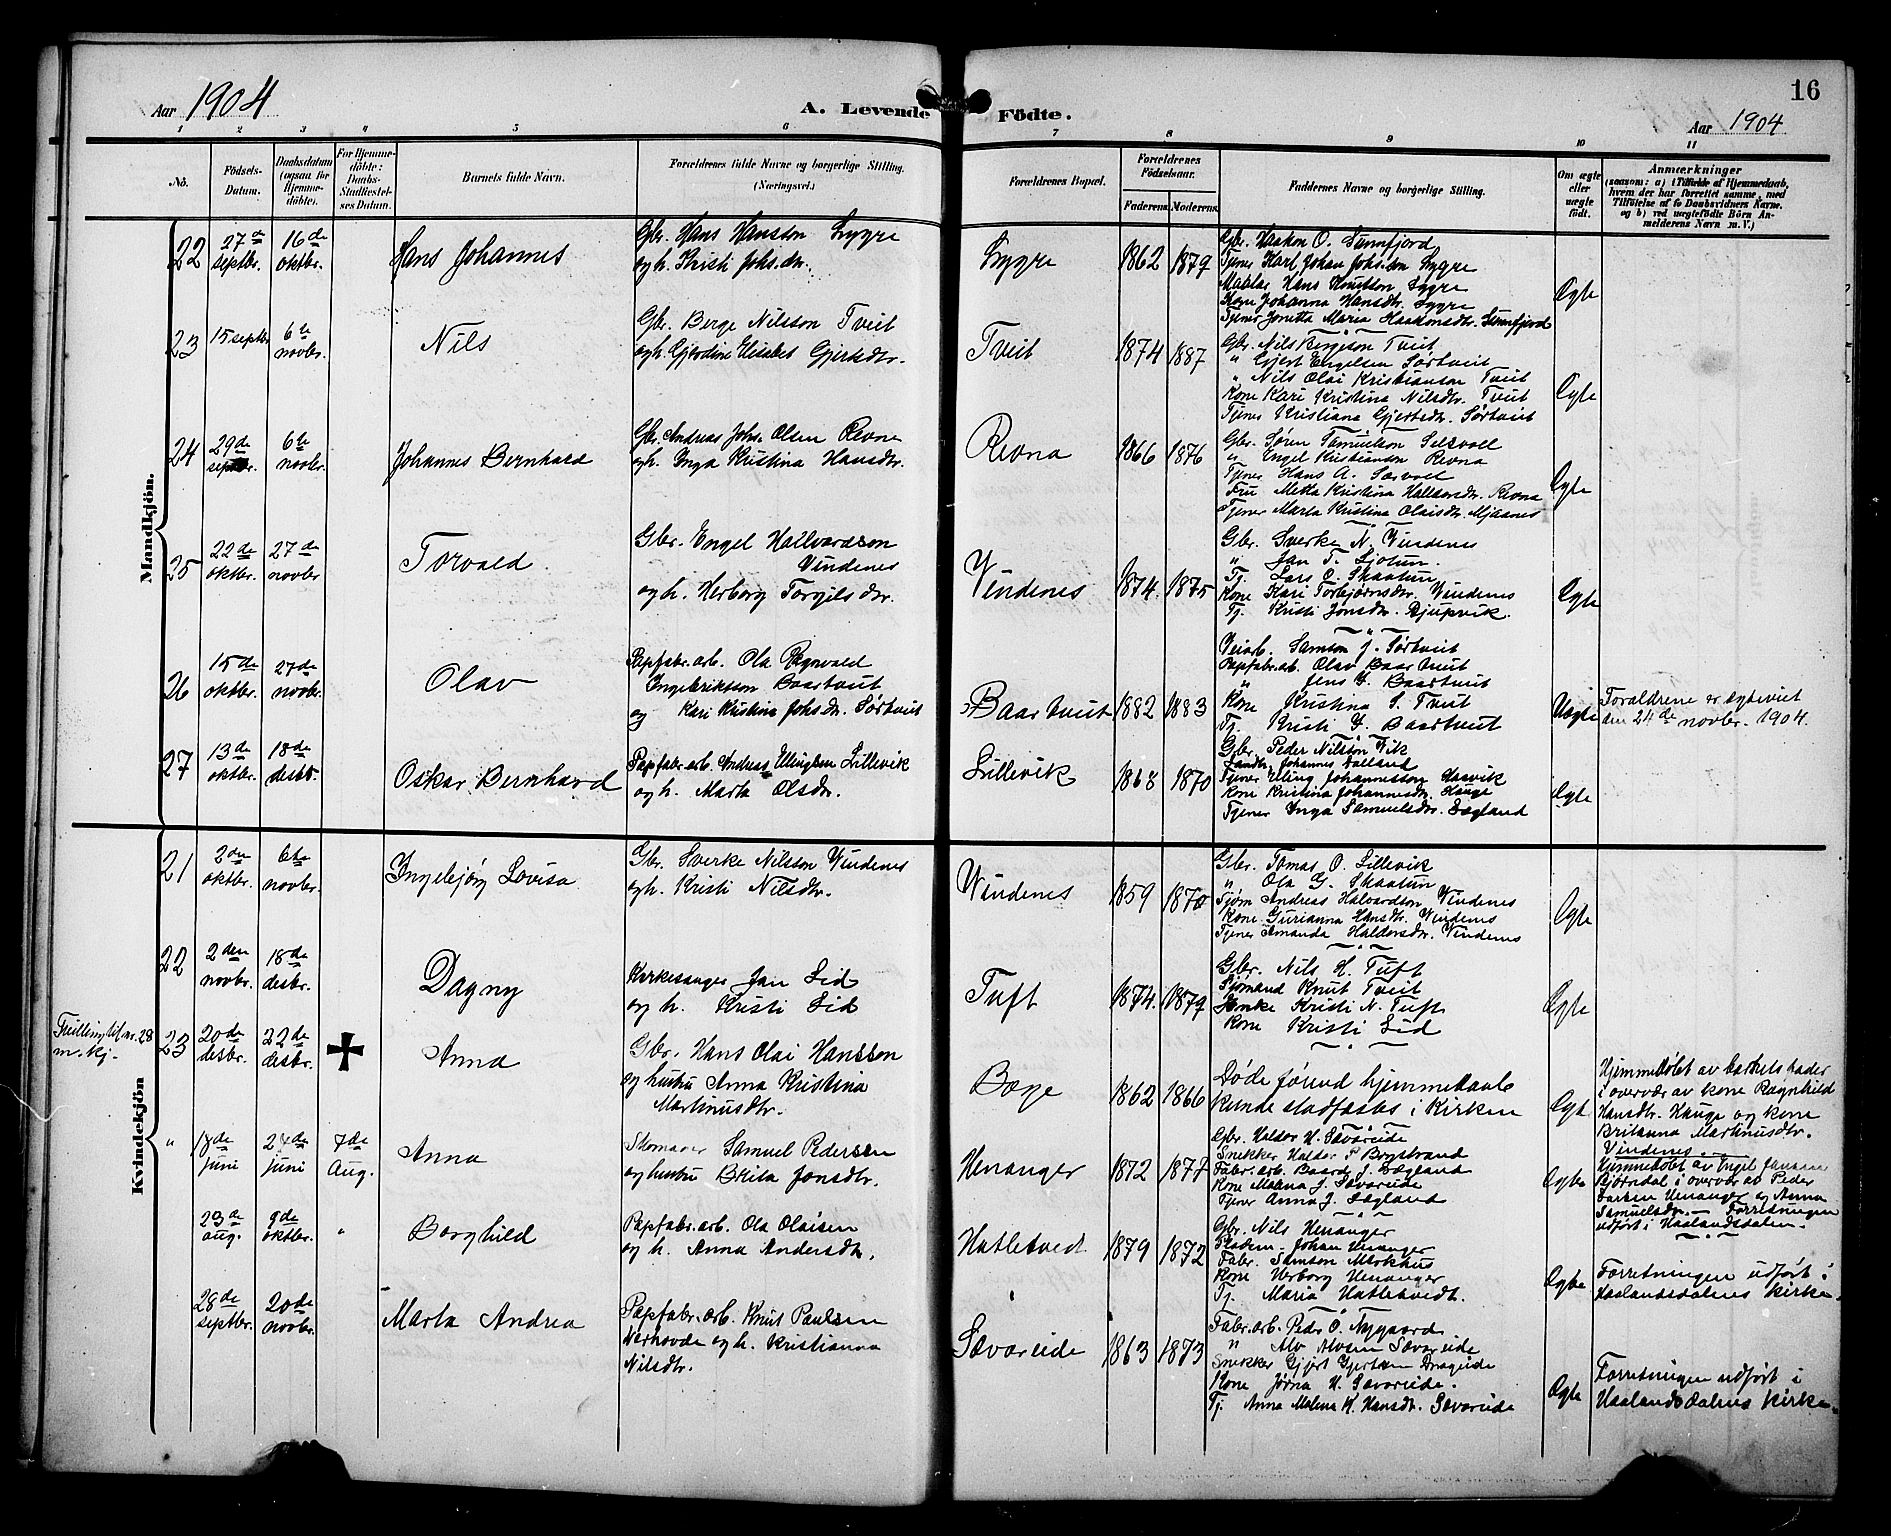 Aar 1904
A. Levende Födte.
16
Aar 1904
1 2 3 4 5 6 7 8 9 10 11
No.
Födsels-Datum.
Daabsdatum (ogsaa for Hjemmedöbte).
For Hjemmedöbte: Daabs-Stadfæstelses Datum.
Barnets fulde Navn.
Forældrenes fulde Navne og borgerlige Stilling. (Næringsvei.)
Forældrenes Bopæl.
Forældrenes Födselsaar.
Faderens. Moderens.
Faddernes Navne og borgerlige Stilling.
Om ægte eller uægte födt.
Anmærkninger
(saasom: a) i Tilfælde af Hjemmedaab, hvem der har forrettet samme, med Tilföielse af to Daabsvidners Navne, og b) ved uægtefödte Börn Anmelderens Navn m. V.)
Mandkjön.
22 27de septbr. 16de oktbr. Hans Johannes
Gbr. Hans Hansson Lygre
og h. Kristi Johs.dr.
Lygre 1862 1879
Gbr. Haakon O. Sunnfjord
Tjener Karl Johan Johs.son Lygre
Hans Knutson Lygre
Kone Johanna Hansdtr. Lygre
Tjener Jonetta Maria Haakonsdtr. Sunnfjord
Ægte
23 15 septbr 6te novbr. Nils
Gbr. Berge Nilsson Tveit
og h. Gjerdine Elisabet Gjertsdtr.
Tveit 1874 1887
Gbr. Nils Bergeson Tveit
" Gjert Engelsen Sørtveit
" Nils Olai Kristianson Tveit
Kone Kari Kristina Nilsdtr. Tveit
Tjener Kristiana Gjertsdtr. Sørtveit
Ægte
24 29de septbr. 6te novbr. Johannes Bernhard
Gbr. Andreas Johs. Olsen Revne
og h. Inga Kristina Hansdtr.
Revna 1866 1876
Gbr. Søren Samuelson Selsvoll
" Engel Kristianson Revna
Tjener Hans A. Særvoll
Fru Metta Kristina Haldorsdtr. Revna
Tjener Marta Kristina Olaisdtr. Mjaanes
Ægte
25 22de oktbr. 27de novbr Torvald.
Gbr. Engel Hallvardson
Vindenes
og h. Herborg Torgilsdtr.
Vindenes 1874. 1875
Gbr. Sverke N. Vindenes
" Jan T. Ljotun.
Tj. Lars O. Skaatun
Kone Kari Torbjørnsdtr. Vindenes
Tj. Kristi Jonsdtr. Djupvik.
Ægte
26 15de oktbr. 27de novbr. Olav
Papfabr.arb. Ola Ragnvald
Ingebriktson Baartveit
og Kari Kristina Johs.dr. Sørtveit
Baartveit 1882 1883
Veiarb. Samson J. Sørtveit
Papfabr.arb. Olav Baartveit
" Jens Y. Baartveit
Kone Kristina S. Tveit
Tj. Kristi Y. Baartveit
Uægte
Forældrene er egteviet
den 24de novbr. 1904.
27 13de oktbr. 18de desbr. Oskar Bernhard
Papfabr.arb. Andreas Ellingsen Lillevik
og h. Marta Olsdtr.
Lillevik 1868 1870
Gbr. Peder Nilsson Vik
Landh. Johannes Dalland
Tjener Elling Johannesson Haavik
Kone Kristina Johannesdtr. Hauge
Tjener Inga Samuelsdtr. Dægland
Ægte
Kvindekjön
21 2den oktbr. 6te novbr. Ingebjørg Lovisa
Gbr. Sverke Nilsson Vindenes
og h. Kristi Nilsdtr.
Vindenes 1859 1870
Gbr. Tomas O. Lillevik
" Ola G. Skaatun
Tjener Andreas Halvardson Vindenes
Kone Gurianna Hansdtr. Vindenes
Tjener Amanda Haldorsdtr. Vindenes
Ægte
22 2den novbr. 18de desbr. Dagny
Kirkesanger Jan Lid
og h. Kristi Lid
Tuft 1874. 1879
Gbr. Nils H. Tuft
Sjømand Knut Tveit
Enke Kristi N. Tuft
Kone Kristi Lid
Ægte
Tvilling til nr. 28
m. kj.
23 20de desbr. 22de desbr. ✝ Anna
Gbr. Hans Olai Hansson
og hustru Anna Kristina
Martinusdtr.
Bøge 1862 1866
Døde førend hjemmedaab
kunde stadfæstes i Kirken
Ægte
Hjemmedøbt av barnets fader
i overvær av kone Ragnhild
Hansdtr. Hauge og kone
Britanna Martinusdtr.
Vindenes.
" 18de juni 24de juni 7de Aug. Anna
Skomager Samuel Pedersen
og hustru Brita Jonsdtr.
Henanger 1872 1877
Gbr. Haldor H. Sævareide
Snekker Haldor P Bogstrand
Fabr.arb. Baard J. Dægland
Kone Malena J. Sævareide
Tjener Anna J. Dægland
Ægte
Hjemmedøbt av Engel Jansen
Bjørndal i overvær av Peder
Larsen Henanger og Anna
Samuelsdtr. – Forretningen
udført i Haalandsdalen.
23de aug. 9de oktbr. " Borghild
Papfabr.arb. Ola Olaisen
og h. Anna Andersdtr.
Hatletvedt 1879 1872
Gbr. Nils Henanger
Johan Henanger
Fabr. Samson Markhus
Kone Herborg Henanger
Tj. Maria Hatletvedt.
Ægte
Forretningen udført i
Haalandsdalens kirke.
28de septbr. 20de novbr. Marta Andrea
Papfabr.arb. Knut Paulsen
Værhovde og h. Kristianna
Nilsdtr.
Sævareide 1863 1873
Fabr.arb. Peder O. Nygaard
" Alv Alvsen Sævareide
Snekker Gjert Gjertsen Drageide
Kone Jørna H. Sævareide.
Tj. Anna Malena K. Hansdtr. Sævareide
Ægte
Forretningen udført i
Haalandsdalens kirke.